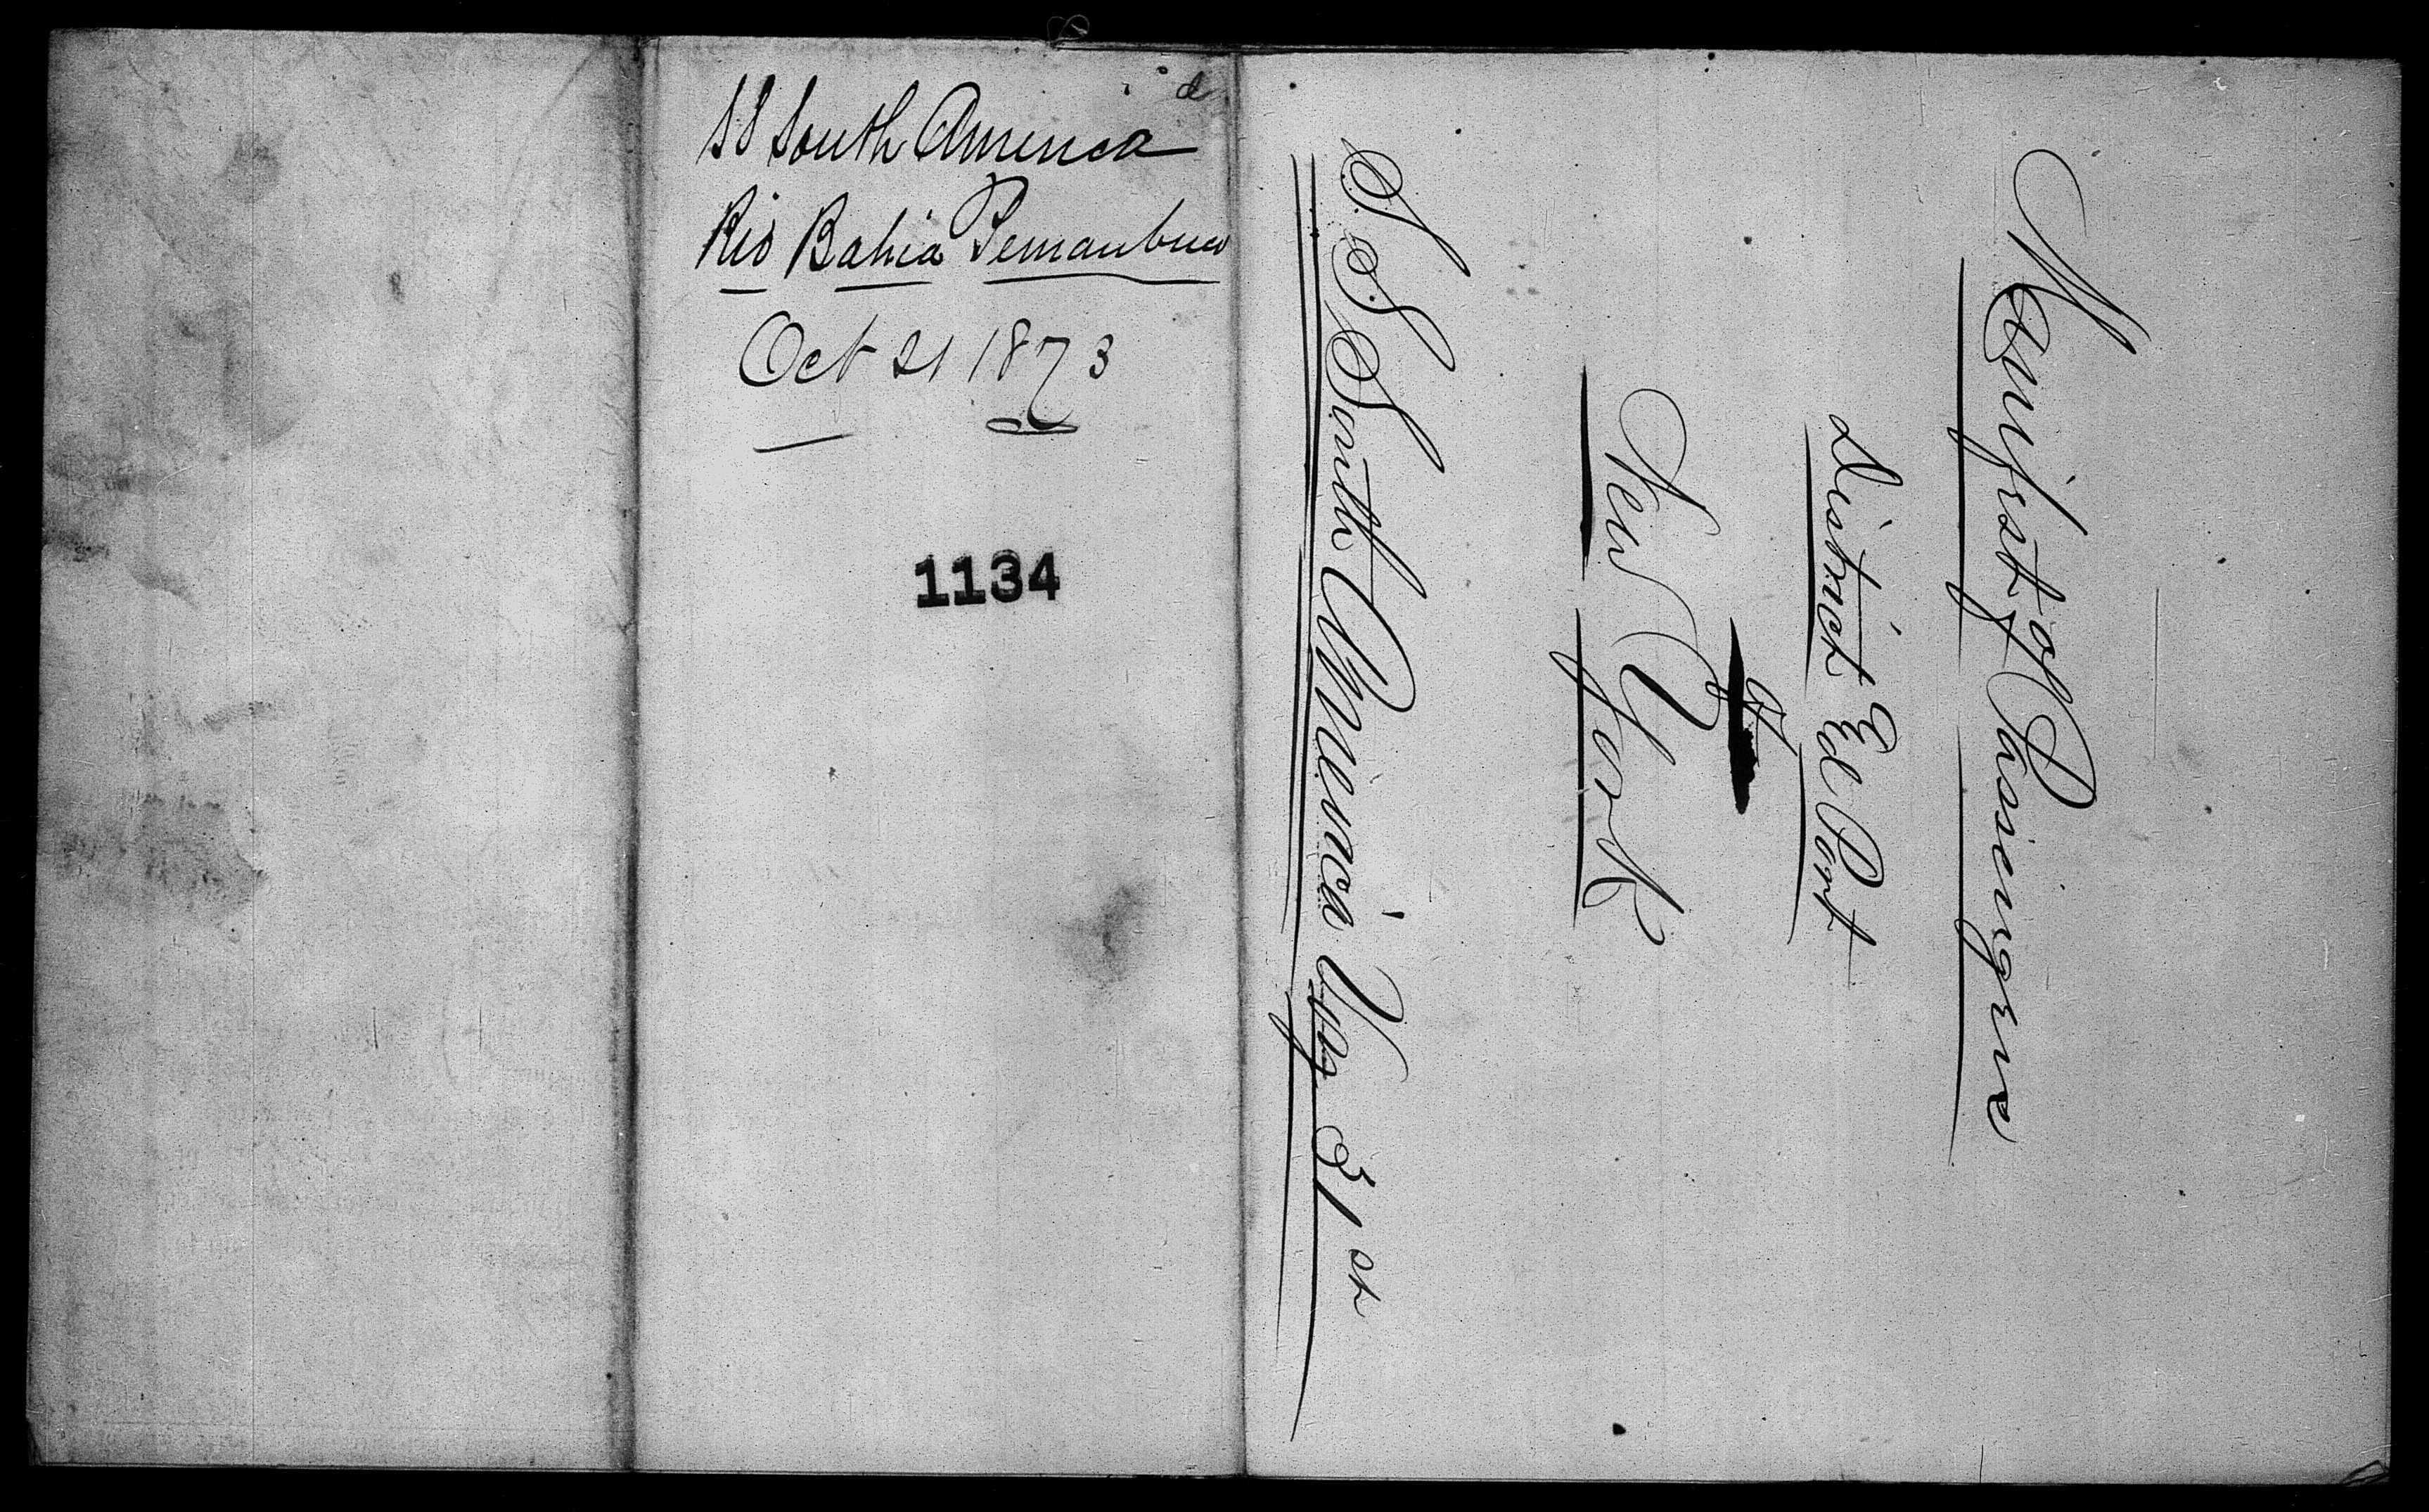 SS South America
Rio Bahia Pernanbuco
Oct 21 1873
1134
Manifest of Passengers
District & Port
of
New York
S.S. South America Voy 31st